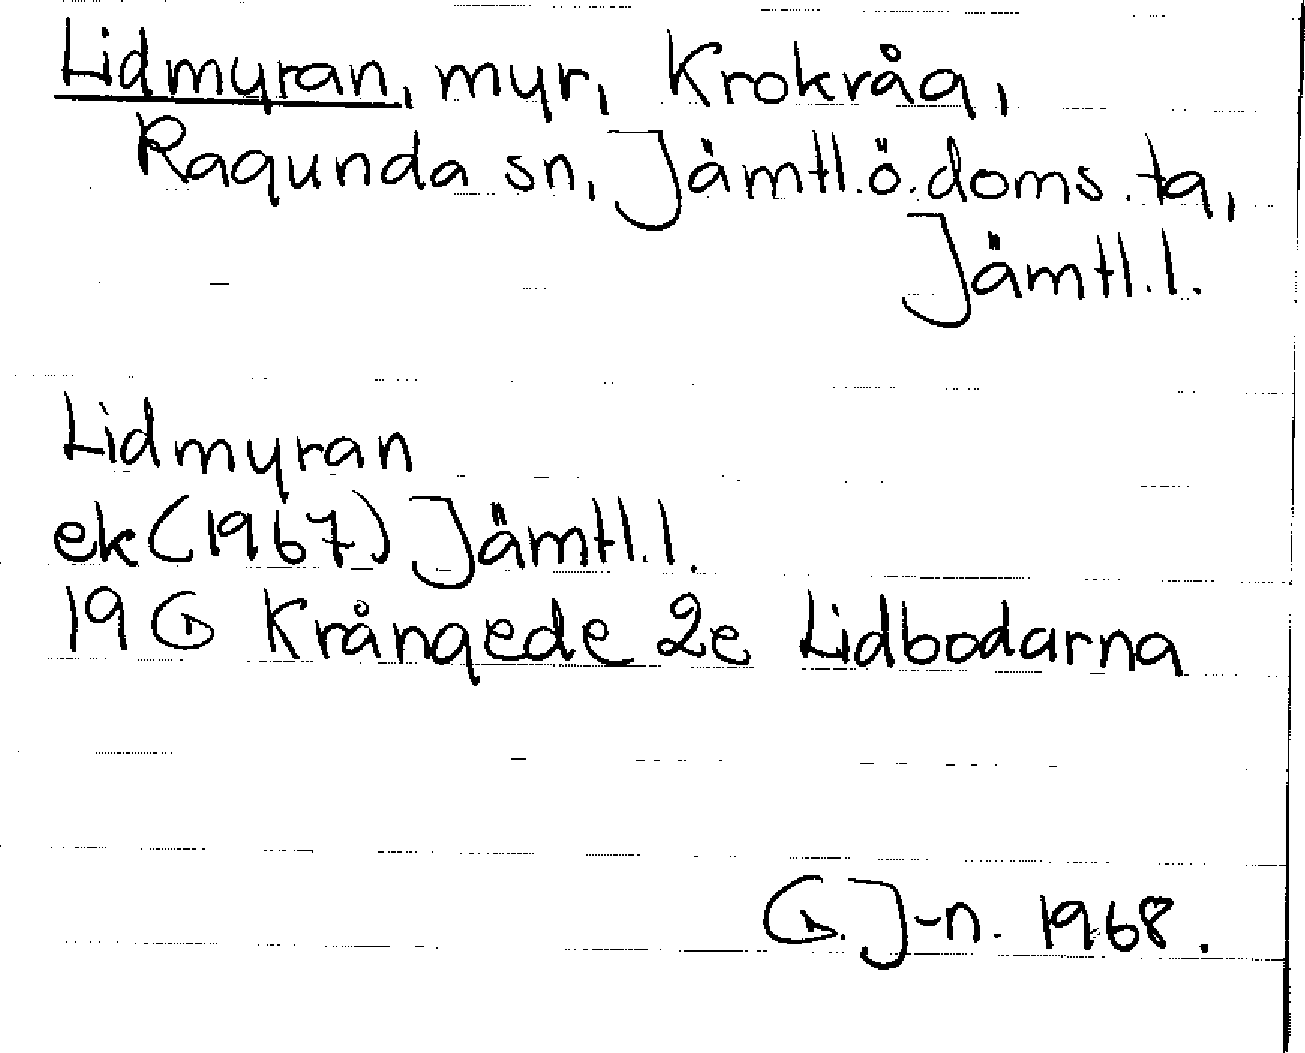 Lidmyran, myr, Krokvåg,
Ragunda sn, Jämtl.ö.doms.ta,
Jämtl.l.
Lidmyran
ek (1967) Jämtl.l.
19 G Krångede 2e Lidbodarna
G. J-n. 1968.